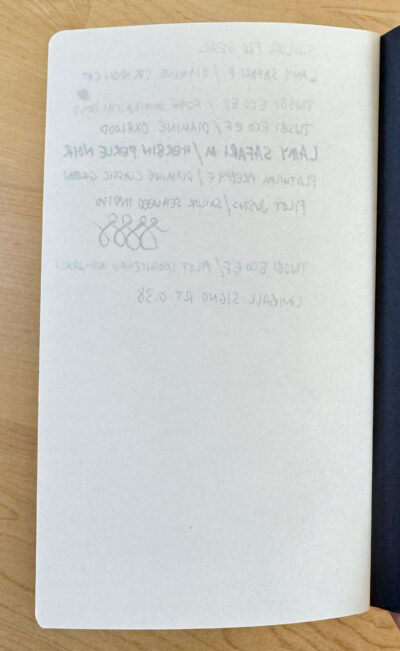 SAILOR PRO GEAR
LAMY SAFARI F / DIAMINE CELADON CAT
TWSBI ECO EF / KOBE
TWSBI ECO EF / DIAMINE OXBLOOD
LAMY SAFARI M / HERBIN PERLE NOIR
PLATINUM PREPPY F / DIAMINE CLASSIC GREEN
PILOT JUSTUS / SAILOR SEAWEED INDIGO
TWSBI ECO EF / PILOT IROSHIZUKU KU-JAKU
UNIBALL SIGNO RT 0.38